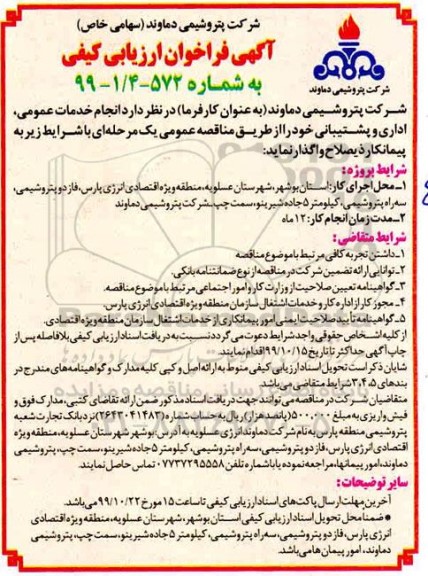 شرکت پتروشیمی دماوند (سهامی خاص)
آگهی فراخوان ارزیابی کیفی
به شماره ۵۷۲-۱/۴-۹۹
شرکت پتروشیمی دماوند
شرکت پتروشیمی دماوند (به عنوان کارفرما) در نظر دارد انجام خدمات عمومی،
اداری و پشتیبانی خود را از طریق مناقصه عمومی یک مرحله‌ای با شرایط زیر به
پیمانکار ذیصلاح واگذار نماید:
شرایط پروژه:
۱-محل اجرای کار: استان بوشهر، شهرستان عسلویه، منطقه ویژه اقتصادی انرژی پارس، فاز دو پتروشیمی،
سه‌راه پتروشیمی، کیلومتر ۵ جاده شیرینو، سمت چپ، شرکت پتروشیمی دماوند
۲-مدت زمان انجام کار: ۱۲ ماه
شرایط متقاضی:
۱-داشتن تجربه کافی مرتبط با موضوع مناقصه
۲-توانایی ارائه تضمین شرکت در مناقصه از نوع ضمانتنامه بانکی.
۳-گواهینامه تعیین صلاحیت از وزارت کار و امور اجتماعی مرتبط با موضوع مناقصه.
۴-مجوز کار از اداره کار و خدمات اشتغال سازمان منطقه ویژه اقتصادی انرژی پارس.
۵-گواهینامه تأیید صلاحیت ایمنی امور پیمانکاری از خدمات اشتغال سازمان منطقه ویژه اقتصادی.
از کلیه اشخاص حقوقی واجد شرایط دعوت می‌گردد نسبت به دریافت اسناد ارزیابی کیفی بلافاصله پس از
چاپ آگهی حداکثر تا تاریخ ۹۹/۱۰/۱۵ اقدام نمایند.
شایان ذکر است تحویل اسناد ارزیابی کیفی منوط به ارائه اصل و کپی کلیه مدارک و گواهینامه‌های مندرج در
بندهای ۳،۴،۵ شرایط متقاضی می‌باشد.
متقاضیان شرکت در مناقصه می‌توانند جهت دریافت اسناد مذکور ضمن ارائه تقاضای کتبی، مدارک فوق و
فیش واریزی به مبلغ ۵۰۰،۰۰۰ (پانصد هزار) ریال به حساب شماره (۲۶۴۳۰۴۱۴۸۳) نزد بانک تجارت شعبه
پتروشیمی منطقه پارس به نام شرکت دماوند انرژی عسلویه به آدرس: بوشهر شهرستان عسلویه، منطقه ویژه
اقتصادی انرژی پارس، فاز دو پتروشیمی، سه‌راه پتروشیمی، کیلومتر ۵ جاده شیرینو، سمت چپ، پتروشیمی
دماوند، امور پیمانها، مراجعه نموده یا با شماره تلفن ۰۷۷۳۷۲۹۵۵۵۸ تماس حاصل نمایند.
سایر توضیحات:
آخرین مهلت ارسال پاکت‌های اسناد ارزیابی کیفی تا ساعت ۱۵ مورخ ۹۹/۱۰/۲۲ می‌باشد.
● ضمنا محل تحویل اسناد ارزیابی کیفی استان بوشهر، شهرستان عسلویه، منطقه ویژه اقتصادی
انرژی پارس، فاز دو پتروشیمی، سه‌راه پتروشیمی، کیلومتر ۵ جاده شیرینو، سمت چپ، پتروشیمی
دماوند، امور پیمان ها می‌باشد.